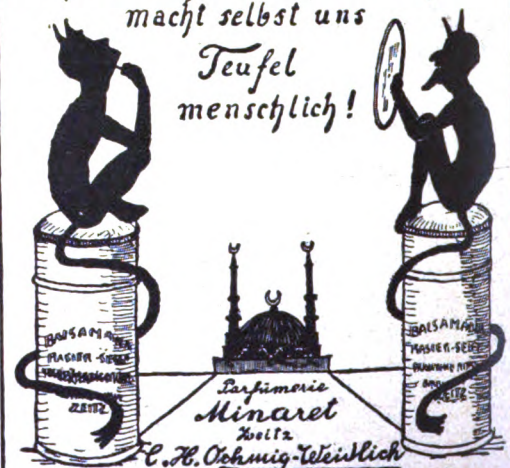 macht selbst uns
Teufel
menschlich!
BALSAMANA
RASIER-SEIFE
ZEITZ
BALSAMANA
RASIER-SEIFE
ZEITZ
Parfümerie
Minaret
Zeitz
C. H. Oehmig-Weidlich